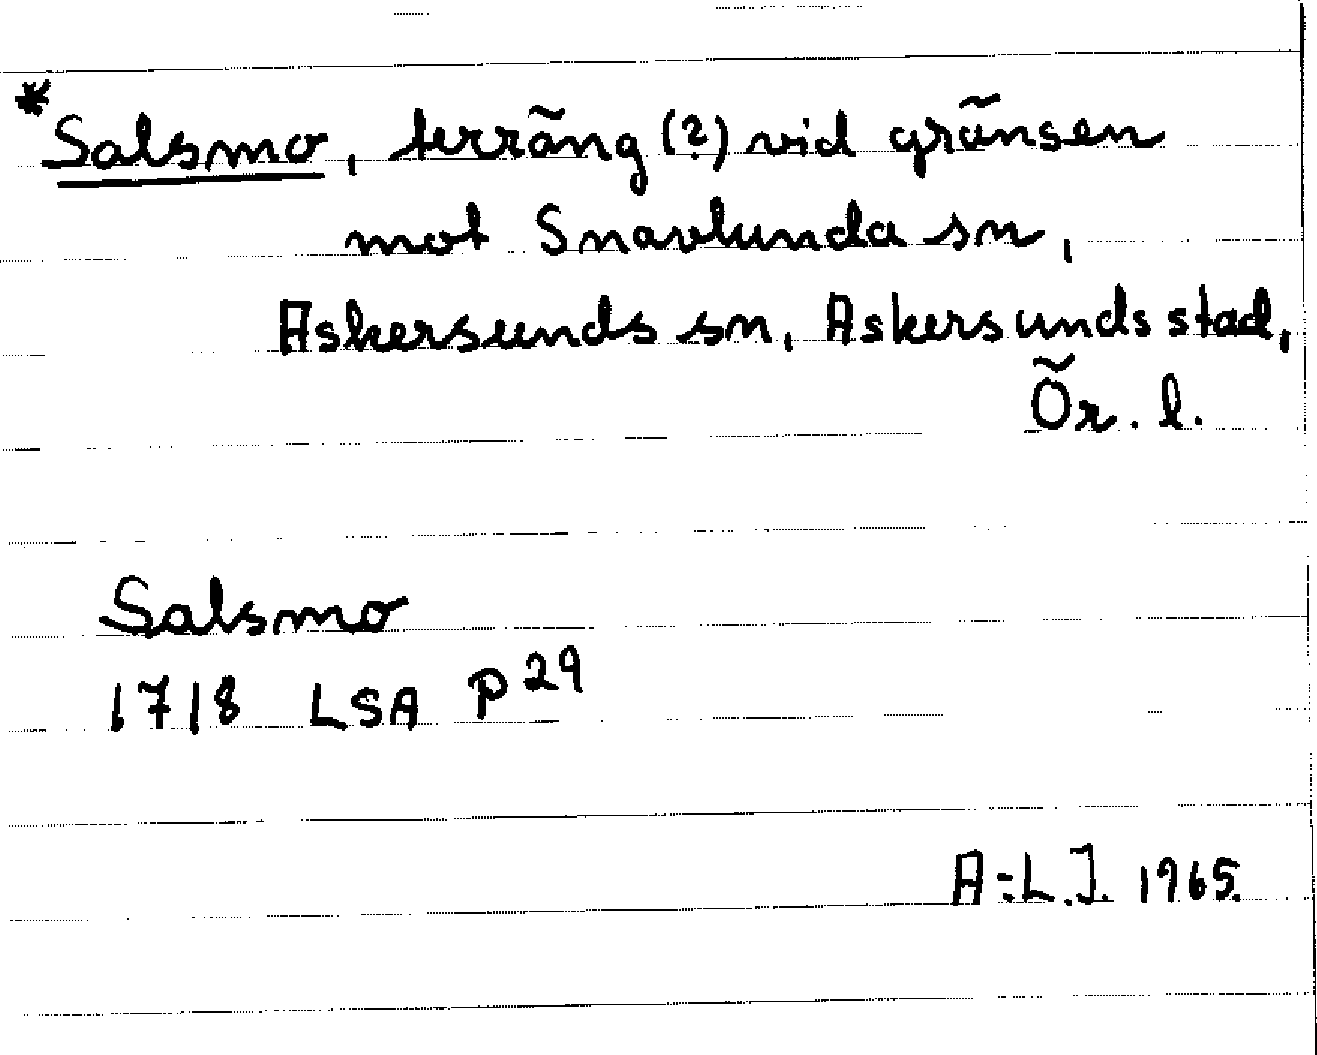 *Salsmo, terräng (?) vid gränsen
mot Snavlunda sn,
Askersunds sn, Askersunds stad,
Ör. l.
Salsmo
1718 LSA P 29
A-L.J. 1965.